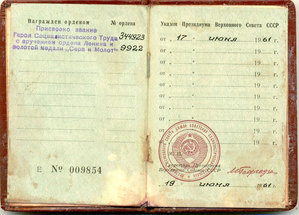 Награжден орденом
№ ордена
Присвоено звание
Героя Социалистического Труда
с вручением ордена Ленина и
золотой медали „Серп и Молот"
344923
9922
Е № 009854
Указом Президиума Верховного Совета СССР
от „17" июня 1961 г.
от „ " 19 г.
от „ " 19 г.
от „ " 19 г.
от „ " 19 г.
от „ " 19 г.
от „ " 19 г.
от „ " 19 г.
Президиума
Верховного Совета СССР
19 июня 1961 г.